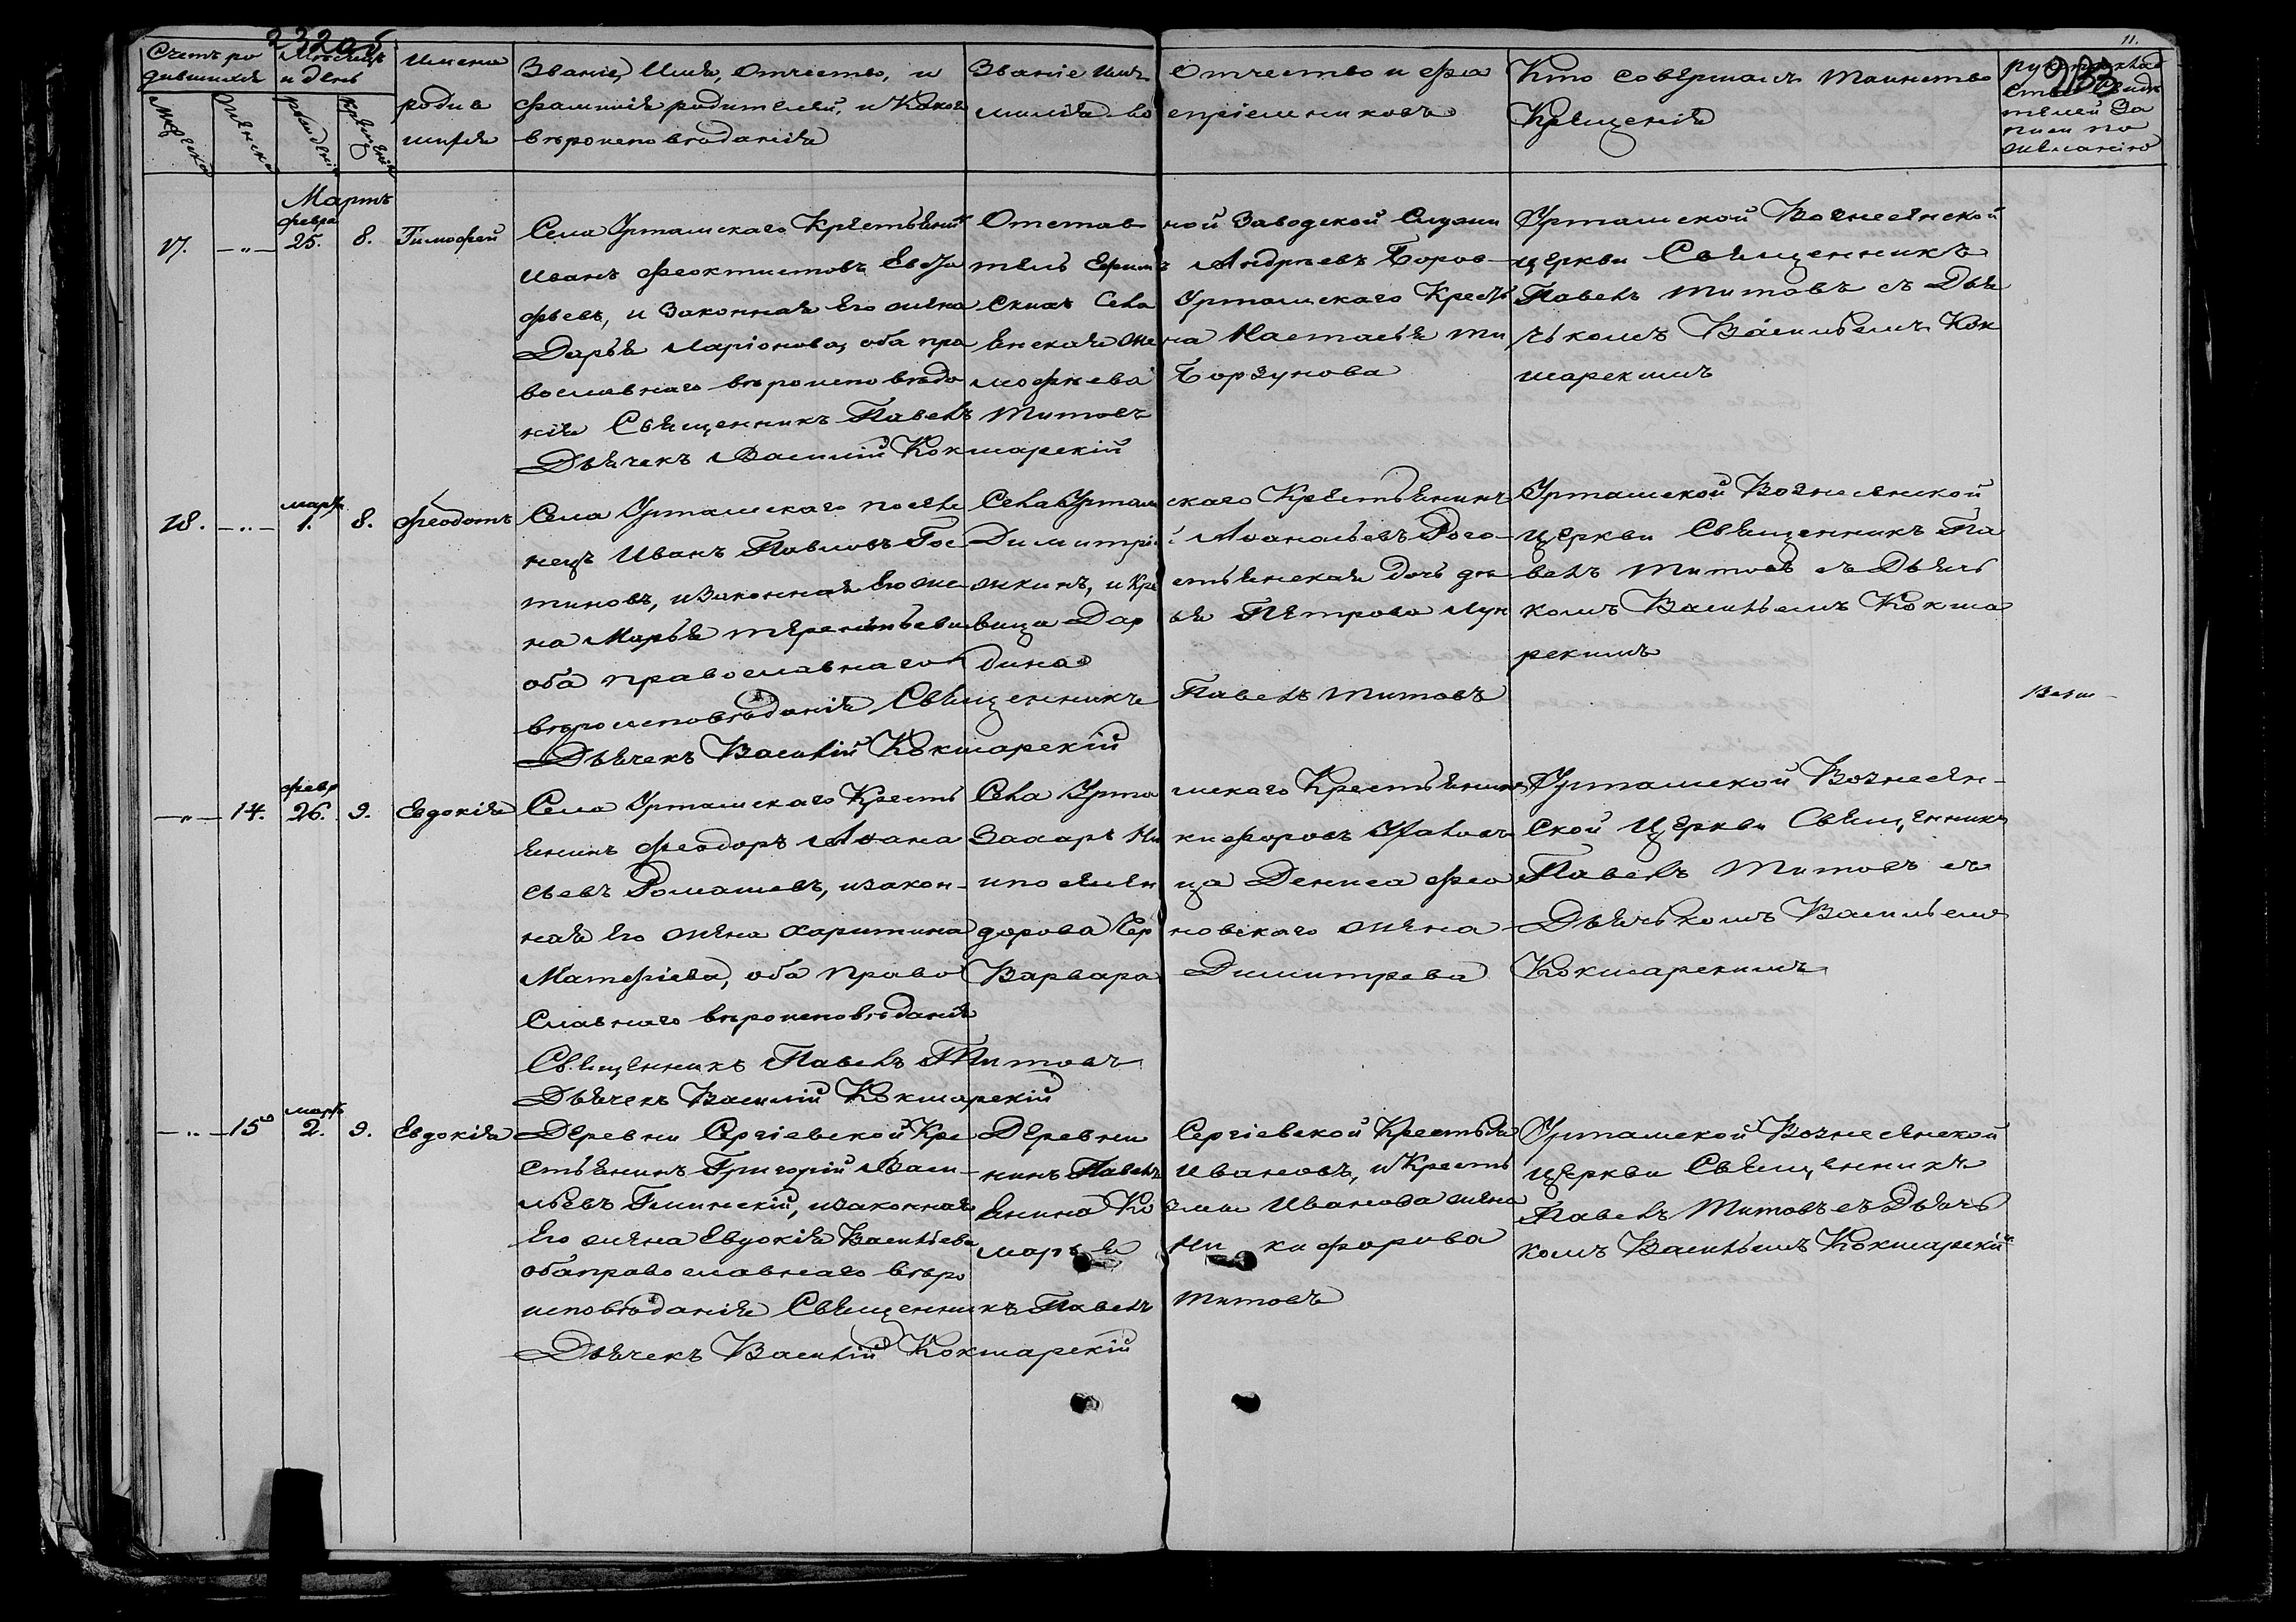 232об
11.
233
Счетъ ро
дившихся
Мужеска
Женска
Мѣсяцъ
и день
рожденія
крещенія
Имена
родив
шихся
Званіе, Имя, Отчество, и
фамилія родителей, и Какого
вѣроисповѣданія
Званіе имя
Отчество и фа
милія во
спріемниковъ
Кто совершалъ Таинство
Крещенія
рукоприклад
ство свидѣ
телей За
писи по
желанію
Мартъ
февра
17. — " — 25. 8. Тимофей
Села Урташскаго Крестьянинъ
Иванъ Феоктистовъ
фьевъ, и законная Его жена
Дарья Ларіонова, оба пра
вославнаго вѣроисповѣда
нія Священникъ Павелъ Титовъ
Дьячекъ Василій Кокшарскій
Отстав ной Заводской Служи
тель Ефимъ Андреевъ Боров
скихъ Села Урташскаго Кресть
янская же на Настасья Ти
мофѣева Борзунова
Урташской Вознесенской
церкви Священникъ
Павелъ Титовъ съ Дья
чькомъ Васильемъ Кок
шарскимъ
мартъ
18. — " — 1. 8. Феодотъ
Села Урташскаго поселе
нецъ Иванъ Павловъ Гос
тиновъ, и Законная Его же
на Марья Терентьева
оба православнаго
вѣроисповѣданія Священникъ Павелъ Титовъ
Дьячекъ Василій Кокшарскій
Села Урташ скаго Крестьянинъ
Димитрій Аѳанасьевъ Рого
жкинъ, и Кре стьянская дочь дѣ
вица Дар ья Петрова Лун
дина
Урташской Вознесенской
церкви Священникъ Па
велъ Титовъ съ Дьячь
комъ Васильемъ Кокша
рскимъ
февр
— " — 14. 26. 9. Евдокія
Села Урташскаго Кресть
янинъ Феодоръ Аѳана
сьевъ Ромашевъ, и закон
ная Его жена Харитина
Матфіева, оба право
Славнаго вѣроисповѣданія
Священникъ Павелъ Титовъ
Дьячекъ Василій Кокшарскій
Села Урта шскаго Крестьянинъ
Захаръ Ни кифоровъ
и поселен ца Дениса Фео
дорова Чер новскаго жена
Варвара Димитрева
Урташской Вознесен
ской Церкви Священникъ
Павелъ Титовъ съ
Дьячькомъ Васильемъ
Кокшарскимъ
мартъ
— " — 15 2. 9. Евдокія
Деревни Сергіевской Кре
стьянинъ Григорій Васи
льевъ Глинскій, и законная
Его жена Евдокія Васильева
оба православнаго вѣро
исповѣданія Священникъ Павелъ Титовъ
Дьячекъ Василій Кокшарскій
Деревни Сергіевской Крестья
нинъ Павелъ Ивановъ, и Кресть
янина Ко змы Иванова жена
Марья Никифорова
Урташской Вознесенской
церкви Священникъ
Павелъ Титовъ съ Дьячь
комъ Васильемъ Кокшарскій